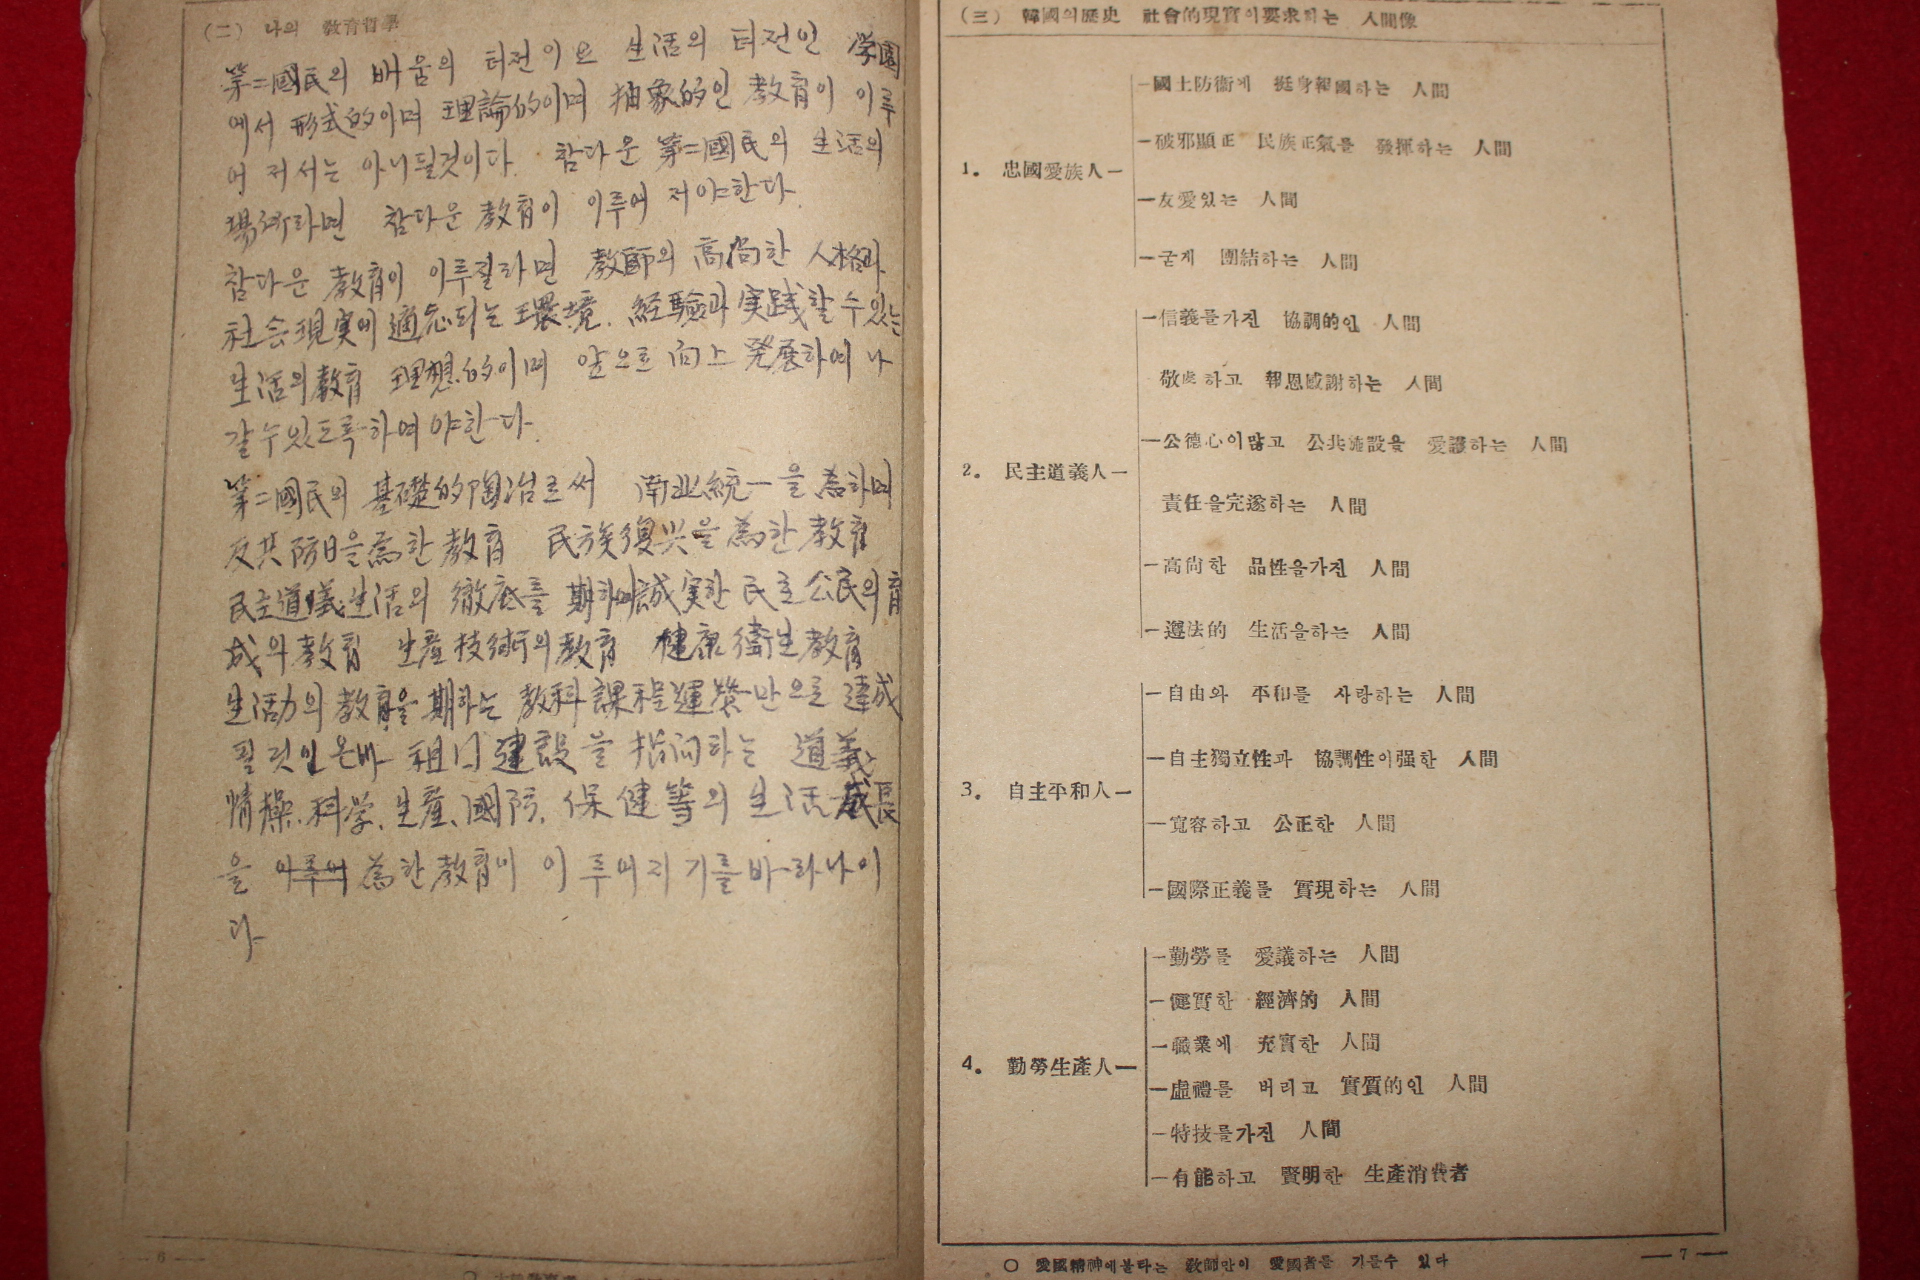 (二) 나의 敎育哲學
第二國民의 배움의 터전이요 生活의 터전인 学園
에서 形式的이며 理論的이며 抽象的인 教育이 이루
어 저서는 아니될것이다. 참다운 第二國民의 生活의
場所라면 참다운 教育이 이루어 저야한다.
참다운 教育이 이루질라면 教師의 高尚한 人格과
社会現実에 適応되는 環境. 経験과 実践할수있는
生活의教育 理想的이며 앞으로 向上 発展하여 나
갈수있도록하여야한다.
第二國民의 基礎的陶冶로써 南北統一을 為하며
反共防日을為한教育 民族復兴을 為한教育
民主道義生活의 徹底를 期하며誠実한 民主公民의育
成의教育 生産技術의教育 健康衛生教育
生活力의教育을期하는 教科課程運営만으로 達成
될것인은바 祖国建設을 指向하는 道義
情操.科学.生産.國防.保健等의生活成長
을 이루어 為한教育이 이루어지기를바라나이
다
6
(三) 韓國의歷史 社會的現實이要求하는 人間像
1. 忠國愛族人
國土防衞에 挺身報國하는 人間
破邪顯正 民族正氣를 發揮하는 人間
友愛있는 人間
굳게 團結하는 人間
2. 民主道義人
信義를가진 協調的인 人間
敬虔하고 報恩感謝하는 人間
公德心이많고 公共施設을 愛護하는 人間
責任을完遂하는 人間
高尙한 品性을가진 人間
遵法的 生活을하는 人間
3. 自主平和人
自由와 平和를 사랑하는 人間
自主獨立性과 協調性이强한 人間
寬容하고 公正한 人間
國際正義를 實現하는 人間
4. 勤勞生產人
勤勞를 愛議하는 人間
健實한 經濟的 人間
職業에 充實한 人間
虛禮를 버리고 實質的인 人間
特技를가진 人間
有能하고 賢明한 生產消費者
○ 愛國精神에불타는 敎師만이 愛國者를 기를수 있다
7